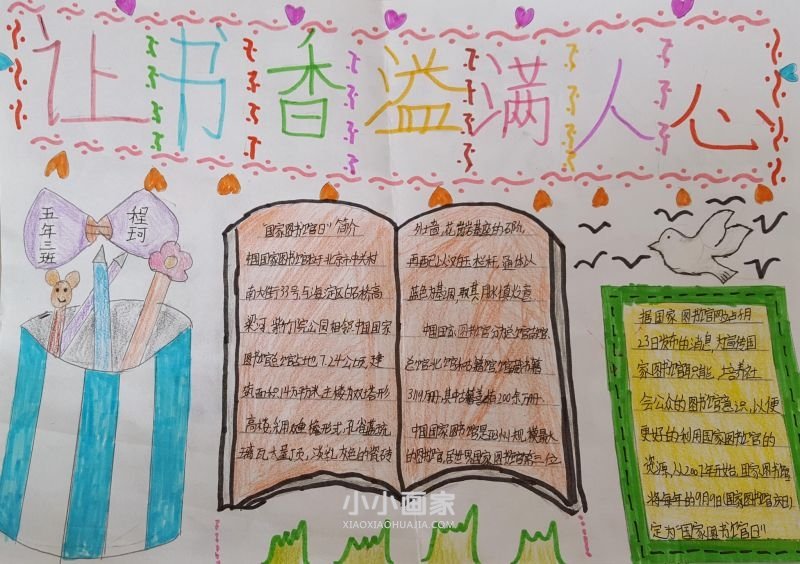 让书香溢满人心
五年三班
程珂
"国家图书馆日"简介
中国国家图书馆位于北京市中关村
南大街33号与海淀区白石桥高
梁河、紫竹院公园相邻中国国家
图书馆总馆占地7.24公顷,建
筑面积14万平方米,主楼为双塔形
高楼,采用双重檐形式,孔雀蓝琉
璃瓦大屋顶,淡乳灰色的瓷砖
外墙,花岗岩基座的石阶,
再配以汉白玉栏杆,通体以
蓝色为基调,取其用水慎火之意
中国国家图书馆分为总馆南区
总馆北馆和古籍馆馆藏书籍
3119万册,其中古籍善本有200余万册.
中国国家图书馆是亚洲规模最大
的图书馆,居世界国家图书馆第三位
据国家图书馆网站4月
23日发布的消息,为宣传国
家图书馆职能,培养社
会公众的图书馆意识,以便
更好的利用国家图书馆的
资源,从2002年开始,国家图书馆
将每年的9月9日(国家图书馆庆日)
定为"国家图书馆日"
小小画家
XIAOXIAOHUAJIA.COM